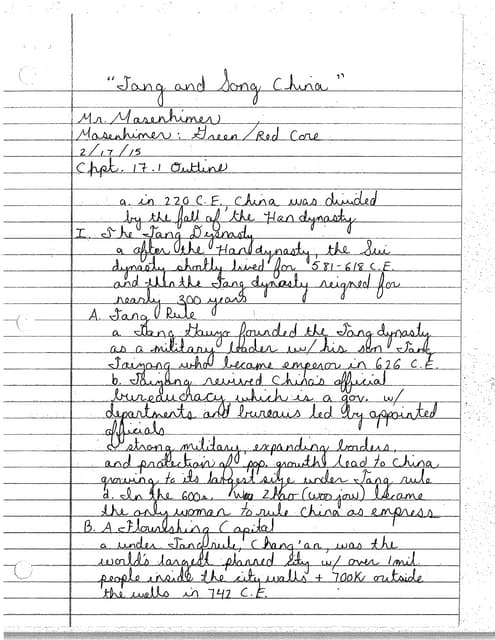 "Tang and Song China"
Mr. Masenhimer
Masenhimer: Green/Red Core
2/17/15
Chpt. 17.1 Outline
a. in 220 C.E., China was divided
by the fall of the Han dynasty
I. The Tang Dysnasty
a after the Han dynasty, the Sui
dynasty shortly lived for 581-618 C.E.
and then the Tang dynasty reigned for
nearly 300 years
A. Tang Rule
a Tang founded the Tang dynasty
as a military leader w/ his son Tang
Taizong who became emperor in 626 C.E.
b. Taizong revived China's official
bureaucracy which is a gov. w/
departments and bureaus led by appointed
officials
strong military, expanding borders,
and protection of pop. growth lead to China
growing to its largest size under Tang rule
d. In the 600s, Wu Zhao (woo jow) became
the only woman to rule China as empress
B. A Flourishing Capital
a under Tang rule, Chang'an, was the
world's largest planned city w/ over 1 mil.
people inside the city walls + 700K outside
the walls in 742 C.E.